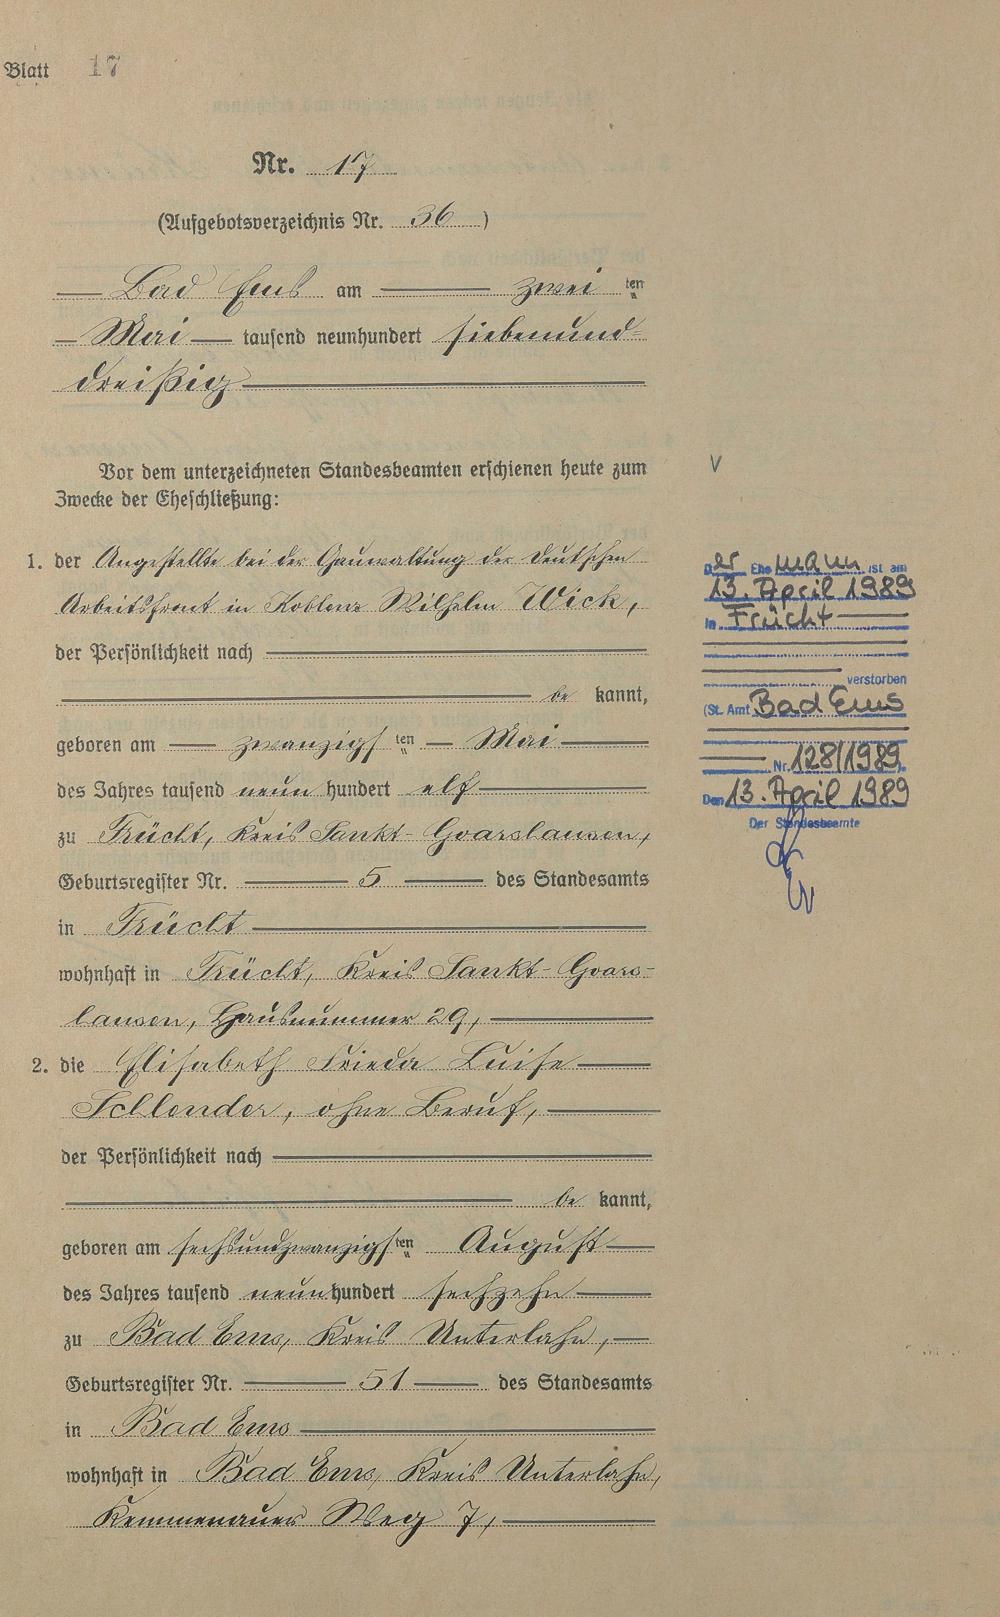 Blatt 17
Nr. 17
(Aufgebotsverzeichnis Nr. 36)
Bad Ems am zwei ten
Mai tausend neunhundert siebenund-
dreißig
Vor dem unterzeichneten Standesbeamten erschienen heute zum
Zwecke der Eheschließung:
1. der Angestellte bei der Gauwaltung der Deutschen
Arbeitsfront in Koblenz Wilhelm Wick,
der Persönlichkeit nach
be kannt,
geboren am zwanzigs ten Mai
des Jahres tausend neun hundert elf
zu Frücht, Kreis Sankt-Goarshausen,
Geburtsregister Nr. 5 des Standesamts
in Frücht
wohnhaft in Frücht, Kreis Sankt-Goars-
hausen, Hausnummer 29,
2. die Elisabeth Frieda Luise
Schlender, ohne Beruf,
der Persönlichkeit nach
be kannt,
geboren am sechsundzwanzigs ten August
des Jahres tausend neun hundert sechzehn
zu Bad Ems, Kreis Unterlahn,
Geburtsregister Nr. 51 des Standesamts
in Bad Ems
wohnhaft in Bad Ems, Kreis Unterlahn,
Kemmenauer Weg 7,
V
Der Ehemann ist am
13. April 1989
in Frücht
verstorben
(St. Amt Bad Ems
Nr. 128/1989).
Den 13. April 1989
Der Standesbeamte